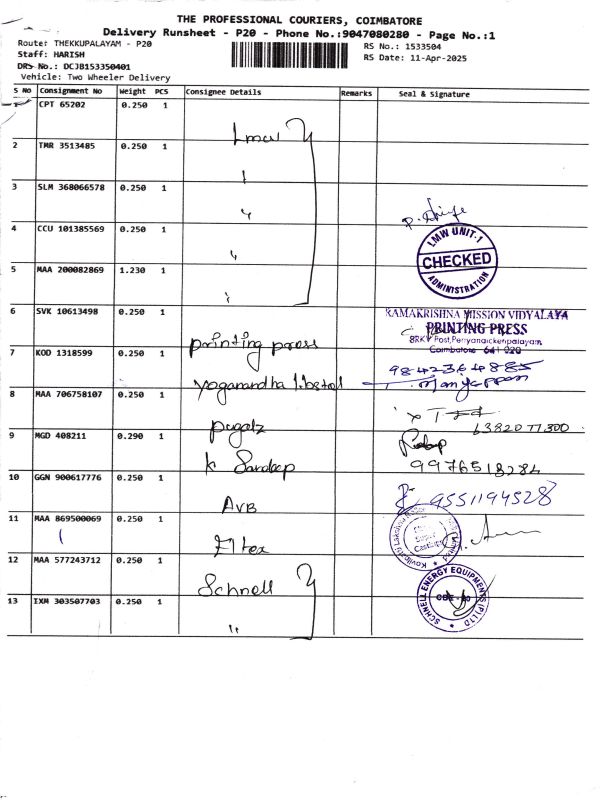 THE PROFESSIONAL COURIERS, COIMBATORE
Delivery Runsheet - P20 - Phone No.:9047080280 - Page No.:1
Route: THEKKUPALAYAM - P20
RS No.: 1533504
Staff: HARISH
RS Date: 11-Apr-2025
DRS No.: DCJB153350401
Vehicle: Two Wheeler Delivery
S No Consignment No Weight PCS Consignee Details Remarks Seal & Signature
CPT 65202 0.250 1
Lmw
2 TMR 3513485 0.250 1
3 SLM 368066578 0.250 1
4 CCU 101385569 0.250 1
LMW UNIT-1
CHECKED
ADMINISTRATION
5 MAA 200082869 1.230 1
6 SVK 10613498 0.250 1
printing press
RAMAKRISHNA MISSION VIDYALAYA
PRINTING PRESS
SRKV Post, Periyanaickenpalayam,
Coimbatore - 641 020
7 KOD 1318599 0.250 1
9842364885
8 MAA 706758107 0.250 1
63820 77300
9 MGD 408211 0.290 1
K Sandeep
9976518284
10 GGN 900617776 0.250 1
AVB
9551194528
11 MAA 869500069 0.250 1
Eltex
12 MAA 577243712 0.250 1
Schnell
SCHNELL ENERGY EQUIPMENTS (P) LTD
13 IXM 303507703 0.250 1